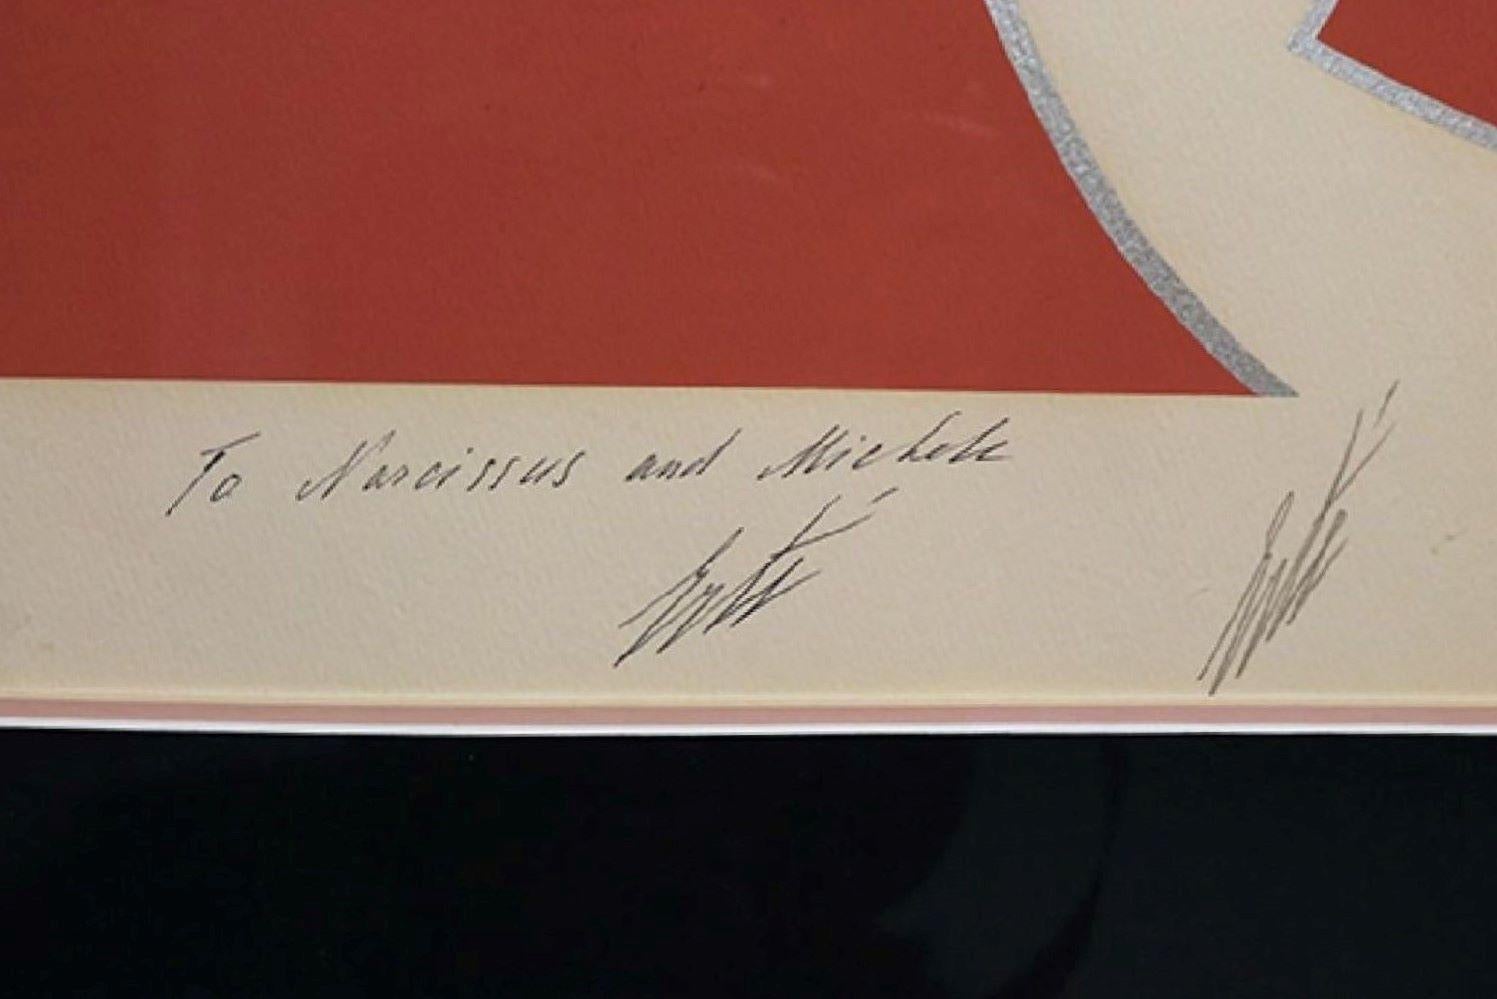 To Narcissus and Michele
Erté
Erté